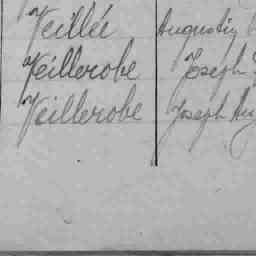 Veillée Augustin
Veillerobe Joseph
Veillerobe Joseph Aug